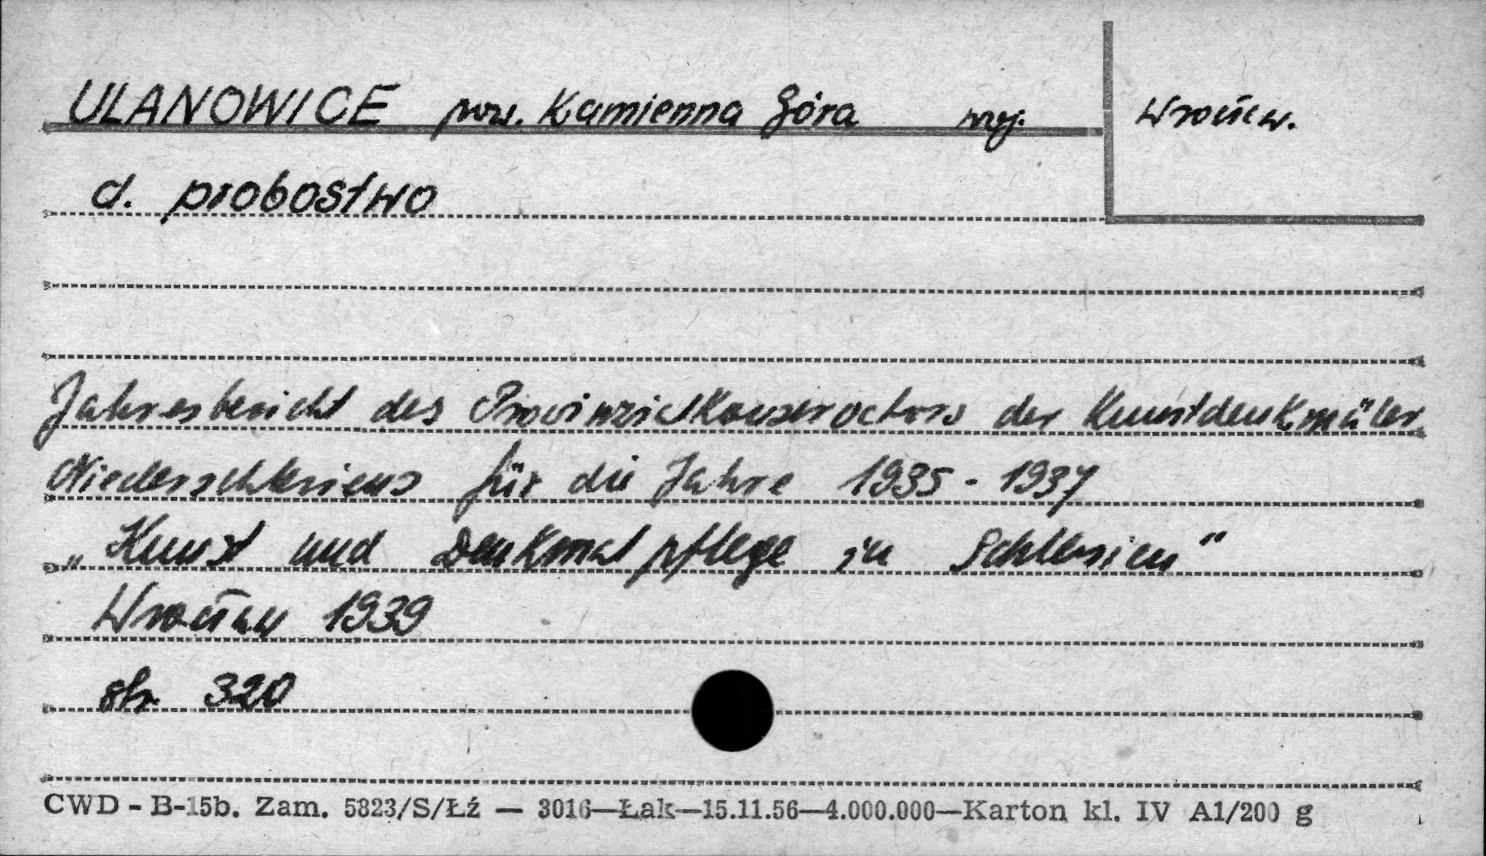 ULANOWICE pow. Kamienna Góra woj. Wrocław.
d. probostwo
Jahresbericht des Provinzialkonservators der Kunstdenkmäler
Niederschlesiens für die Jahre 1935 - 1937
„Kunst und Denkmalpflege in Schlesien"
Wrocław 1939
str. 320
CWD - B-15b. Zam. 5823/S/Łź — 3016—Łak—15.11.56—4.000.000—Karton kl. IV A1/200 g